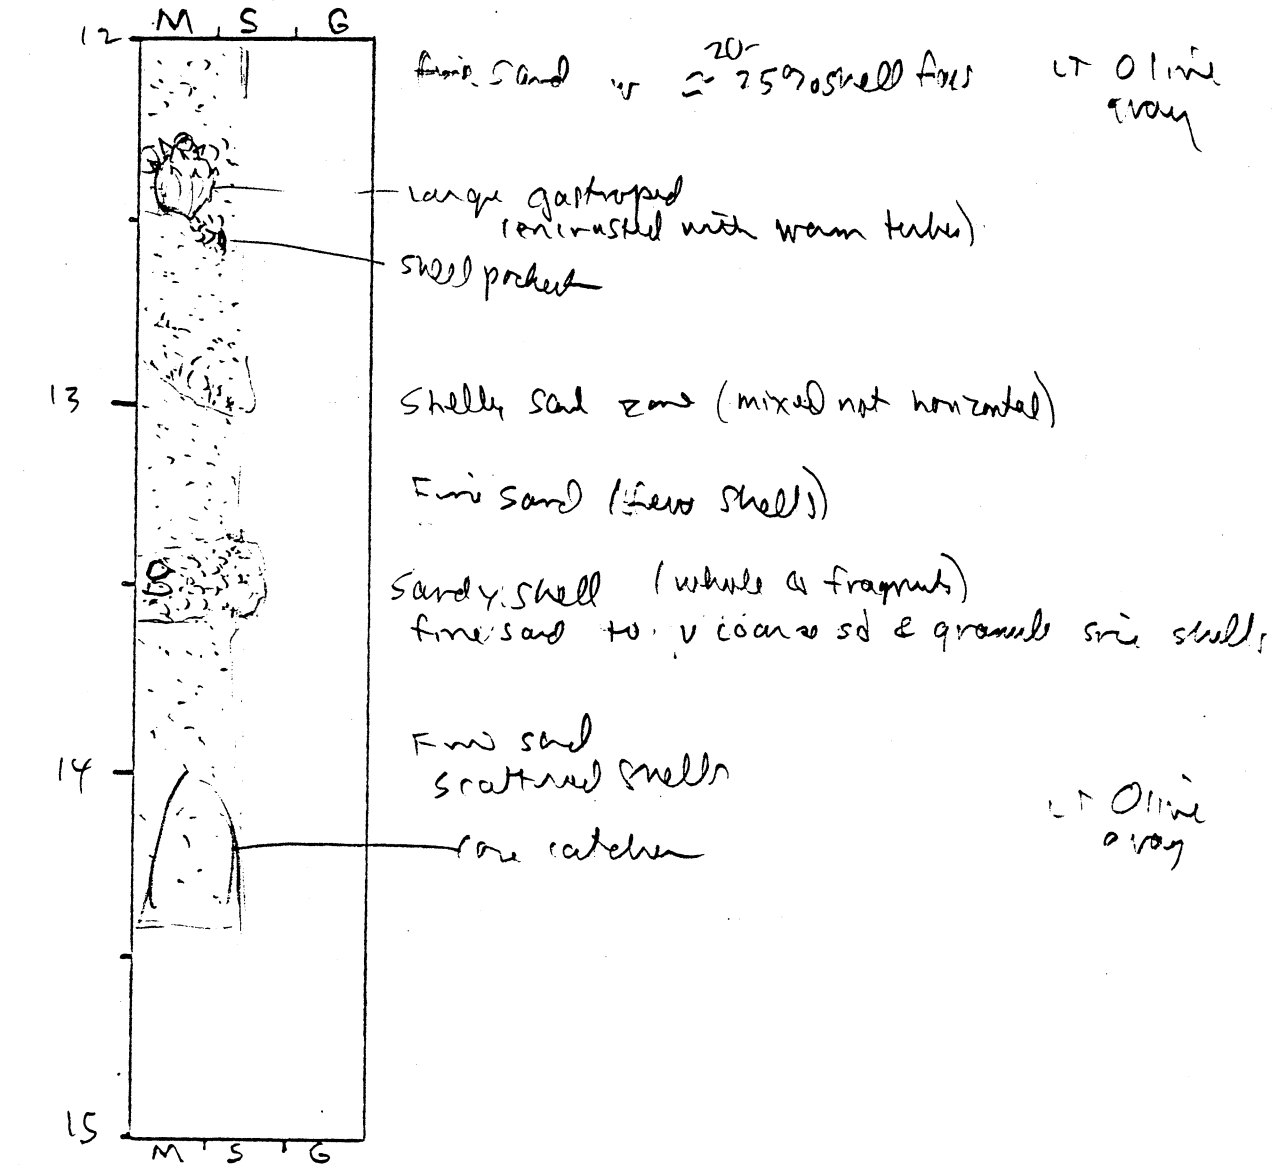 M S G
12
20-
fine sand w ≈ 25% shell frgs
LT Olive
gray
large gastropod
(encrusted with worm tubes)
shell pocket
13
Shelly sand zone (mixed not horizontal)
Fine sand (few shells)
Sandy shell (whole & fragments)
fine sand to v coarse sd & granule size shells
Fine sand
14
scattered shells
LT Olive
gray
core catcher
15
M S G